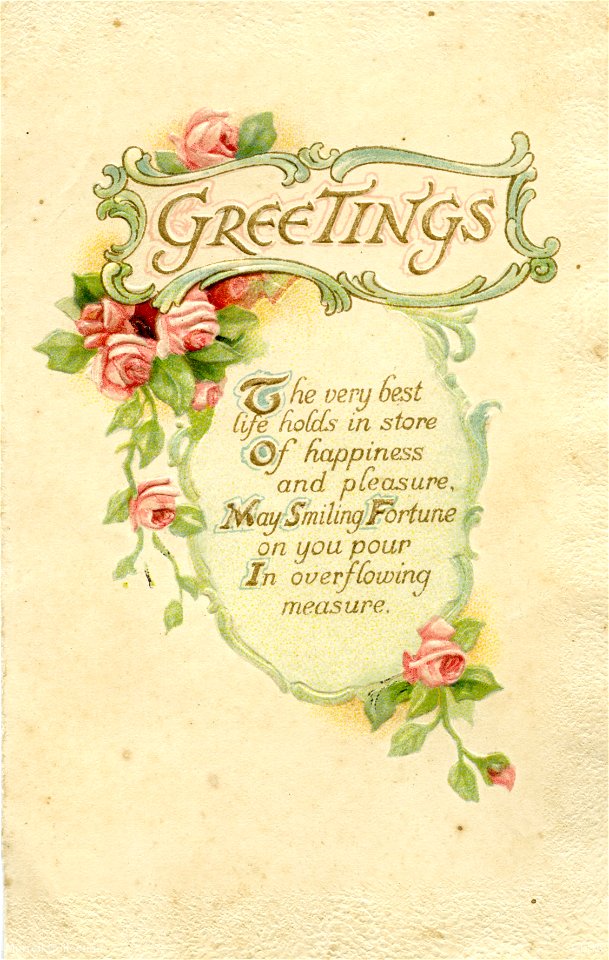 GREETINGS
The very best
life holds in store
Of happiness
and pleasure,
May Smiling Fortune
on you pour
In overflowing
measure.